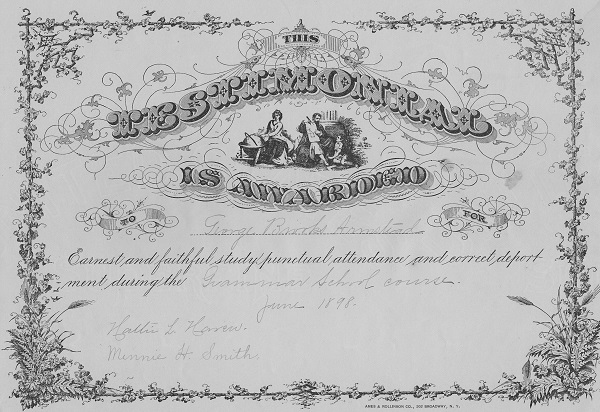 THIS
TESTIMONIAL
IS AWARDED
TO George Brooks Armstead FOR
Earnest and faithful study, punctual attendance and correct deport
ment, during the Grammar School course.
June 1898.
Hattie L.
Minnie H. Smith.
AMES & ROLLINSON CO., 203 BROADWAY, N. Y.